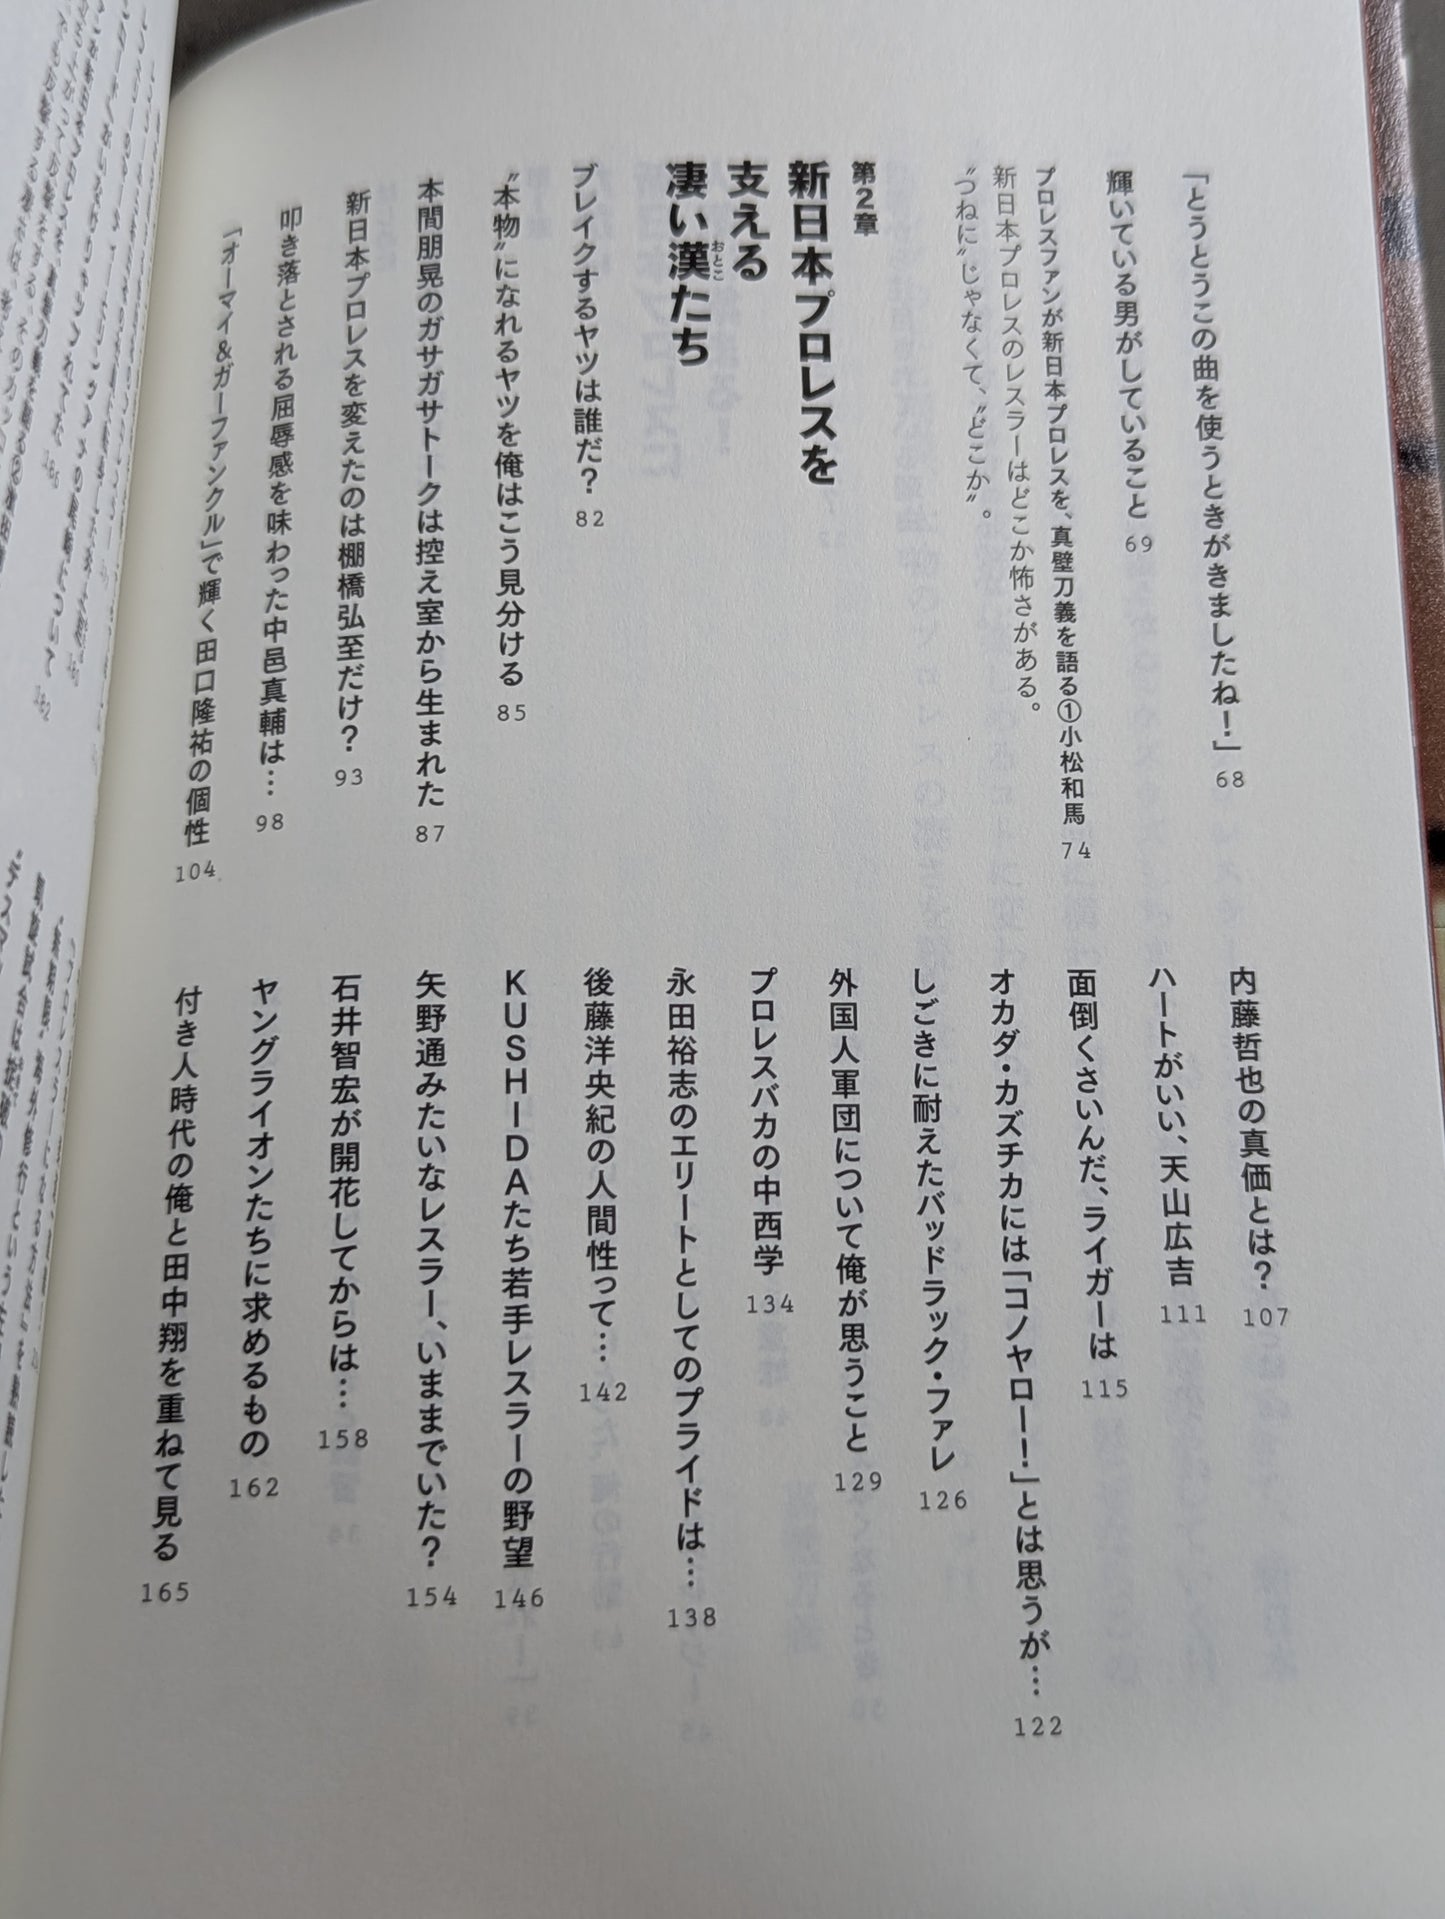 「とうとうこの曲を使うときがきましたね！」 68
輝いている男がしていること 69
プロレスファンが新日本プロレスを、真壁刀義を語る①小松和馬 74
新日本プロレスのレスラーはどこか怖さがある。
〝つねに〟じゃなくて、〝どこか〟。
第2章
新日本プロレスを
支える
凄い漢たち
おとこ
ブレイクするヤツは誰だ？ 82
〝本物〟になれるヤツを俺はこう見分ける 85
本間朋晃のガサガサトークは控え室から生まれた 87
新日本プロレスを変えたのは棚橋弘至だけ？ 93
叩き落とされる屈辱感を味わった中邑真輔は… 98
「オーマイ&ガーファンクル」で輝く田口隆祐の個性 104
内藤哲也の真価とは？ 107
ハートがいい、天山広吉 111
面倒くさいんだ、ライガーは 115
オカダ・カズチカには「コノヤロー！」とは思うが… 122
しごきに耐えたバッドラック・ファレ 126
外国人軍団について俺が思うこと 129
プロレスバカの中西学 134
永田裕志のエリートとしてのプライドは… 138
後藤洋央紀の人間性って… 142
KUSHIDAたち若手レスラーの野望 146
矢野通みたいなレスラー、いままでいた？ 154
石井智宏が開花してからは… 158
ヤングライオンたちに求めるもの 162
付き人時代の俺と田中翔を重ねて見る 165